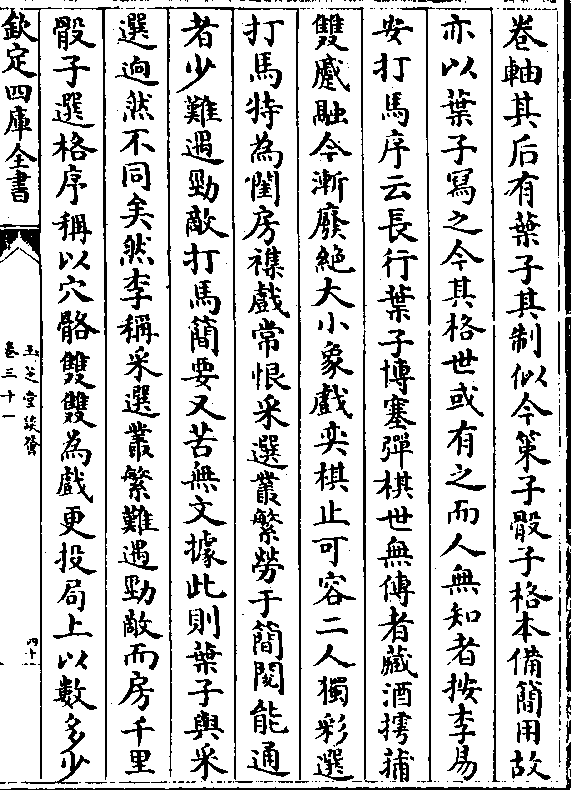 卷軸其后有葉子其制似今策子骰子格本備簡用故
亦以葉子寫之今其格世或有之而人無知者按李易
安打馬序云長行葉子博塞彈棋世無傳者藏酒摴蒱
雙蹙融今漸廢絕大小象戲奕棋止可容二人獨彩選
打馬特為閨房襍戲常恨采選叢繁勞于簡閱能通
者少難遇勁敵打馬簡要又苦無文據此則葉子與采
選逈然不同矣然李稱采選叢繁難遇勁敵而房千里
骰子選格序稱以穴骼雙雙為戲更投局上以數多少
欽定四庫全書
玉芝堂談薈
卷三十一
四十